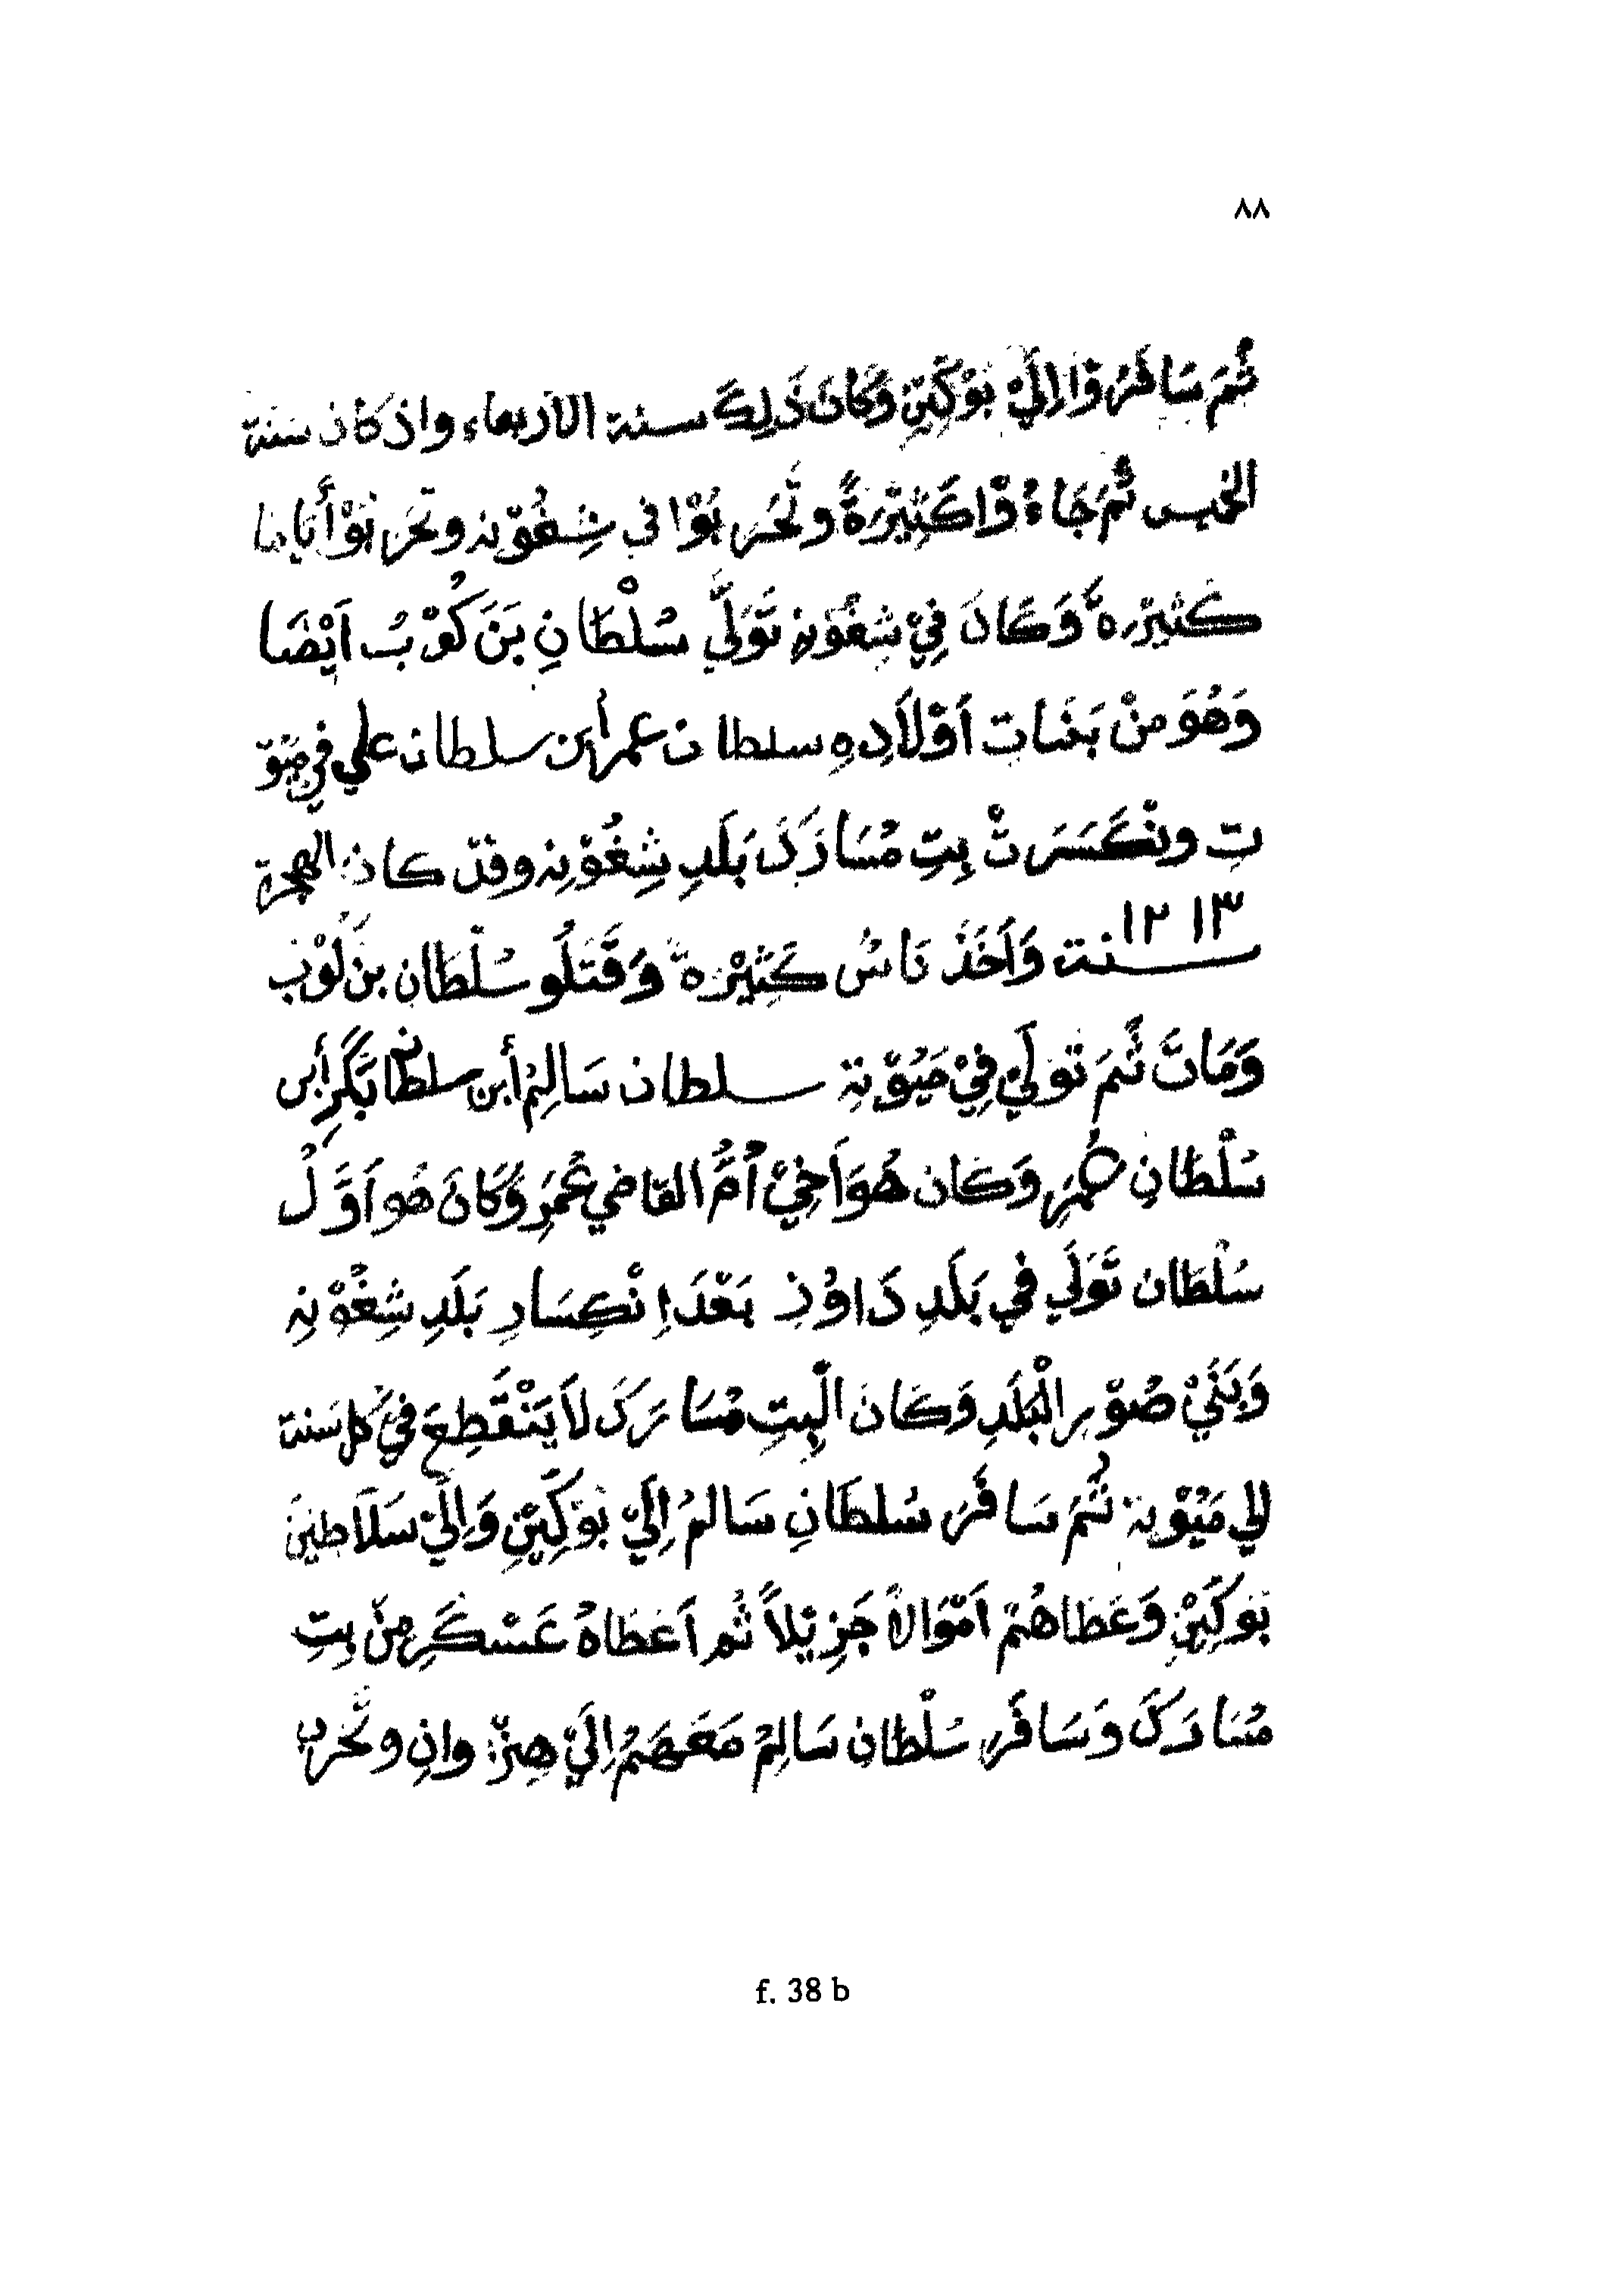 ٨٨
ثُمَ سَافَرُوْا اِلَيْ بَوْكِيْنِ وَكَانَ ذَلِكَ سنة الاربعاء واذ كان سَنة
الخميس ثُمَ جَاءُوْا كَثِيْرَةً وتَحَرَبُوْا في شِغُوْنِه وتَحَرَبُوْا أَيَاما
كَثِيْرَةً وَكَانَ فِيْ شِغُوْنِه تَوَلَّي سُلْطَانِ بَنَ كُوْبُ اَيْضَا
وَهُوَ مِنْ بَنَاتِ اَوْلَادِهِ سلطان عمر أبن سلطان علي في مِيُوْ
تِ ونْكَسَرَتْ بِتِ مُسَازَكَ بَلَدِ شِغُوْنِه وقدْ كان الهجرة
سنت ١٢١٣ وَاَخَذَ نَاسُ كَثِيْرَةً وَقَتَلُو سُلْطَانِ بَنَ كُوْبِ
وَمَاتَ ثُمَ تَوَلَيْ فِيْ مَيُوْتِة سلطان سَالِمُ أبن سلطان بَكَرِ أبن
سُلْطَانِ عُمَرِ وَكَان هُوَ اَخِيْ اُمُّ القاضي عُمَرِ وَكَانَ هُو اَوَّلُ
سُلْطَان تَوَلَّي في بَلَدِ دَاوُنِ بَعْدَ اِنْكِسَارِ بَلَدِ شِغُوْنِه
وَبَنَيْ صُوْرِ الْبَلَدِ وَكَانَ الْبِتِ مُسَارَكَ لَا يَنْقَطِعَ فِيْ كل سَنة
الي مَيُوْتة ثُمَ سَافَرَ سُلطَانِ سَالمُ اِلَيْ بَوْكِيْنِ وَاِلَيْ سَلَاطِيْنَ
بَوكِيْنِ وَعَطَاهُمْ اَمْوَالاً جَزِيْلاً ثُم اَعَطَاهُ عَسْكَرِ مِنْ بِتِ
مُسَارَكَ وَسَافَرَ سُلْطان سَالِمُ مَعَهَمُ اِلَيْ هِنْزُوانِ وتَحَرب
f. 38 b